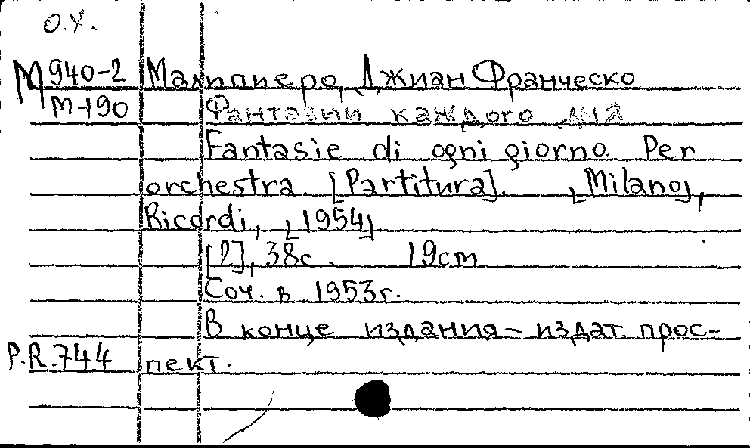 О.У.
М 940-2 Малипиеро, Джиан Франческо
М-190 Фантазии каждого дня
Fantasie di ogni giorno. Per
orchestra. [Partitura]. [Milano],
Ricordi, [1954]
[2], 38с. 19cm
Соч. в 1953г.
В конце издания - издат. прос-
P.R.744 пект.